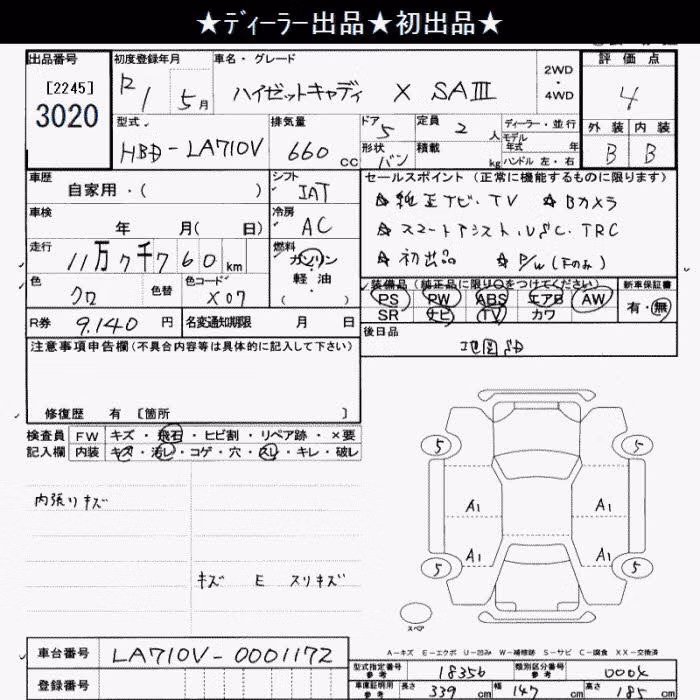 ★ディーラー出品★初出品★
出品番号 [2245] 3020
初度登録年月 R 1 5月
車名・グレード ハイゼットキャディ X SAⅢ
2WD・4WD
評価点 4
外装 内装
B B
型式 HBD-LA710V
排気量 660 CC
ドア 5
形状 バン
定員 2 人
積載 kg
ディーラー・並行
モデル年式 年
ハンドル 左・右
車歴 自家用・( )
シフト IAT
車検 年 月( 日)
冷房 AC
走行 11万7千760 km
燃料 ガソリン・軽油
色 クロ 色替
色コード X07
R券 9.140 円
名変通知期限 月 日
セールスポイント (正常に機能するものに限ります)
☆純正ナビ.TV ☆Bカメラ
☆スマートアシスト.VSC.TRC
☆初出品 ☆P/W(Fのみ)
装備品 (純正品に限り○をつけてください)
PS PW ABS エアB AW
SR ナビ TV カワ
新車保証書 有・無
後日品 地図SD
注意事項申告欄(不具合内容等は具体的に記入して下さい)
修復歴 有 [箇所 ]
検査員記入欄
FW キズ・飛石・ヒビ割・リペア跡・×要
内装 キズ・汚レ・コゲ・穴・スレ・キレ・破レ
内張りキズ
キズ E スリキズ
5 5
A1 A1
A1 A1
5 5
スペア
A-キズ E-エクボ U-凹み W-補修跡 S-サビ C-腐食 XX-交換済
車台番号 LA710V-0001172
登録番号
型式指定番号 参考 18356
類別区分番号 参考 000
車庫証明用 参考 長さ 339 cm 幅 147 cm 高さ 185 cm